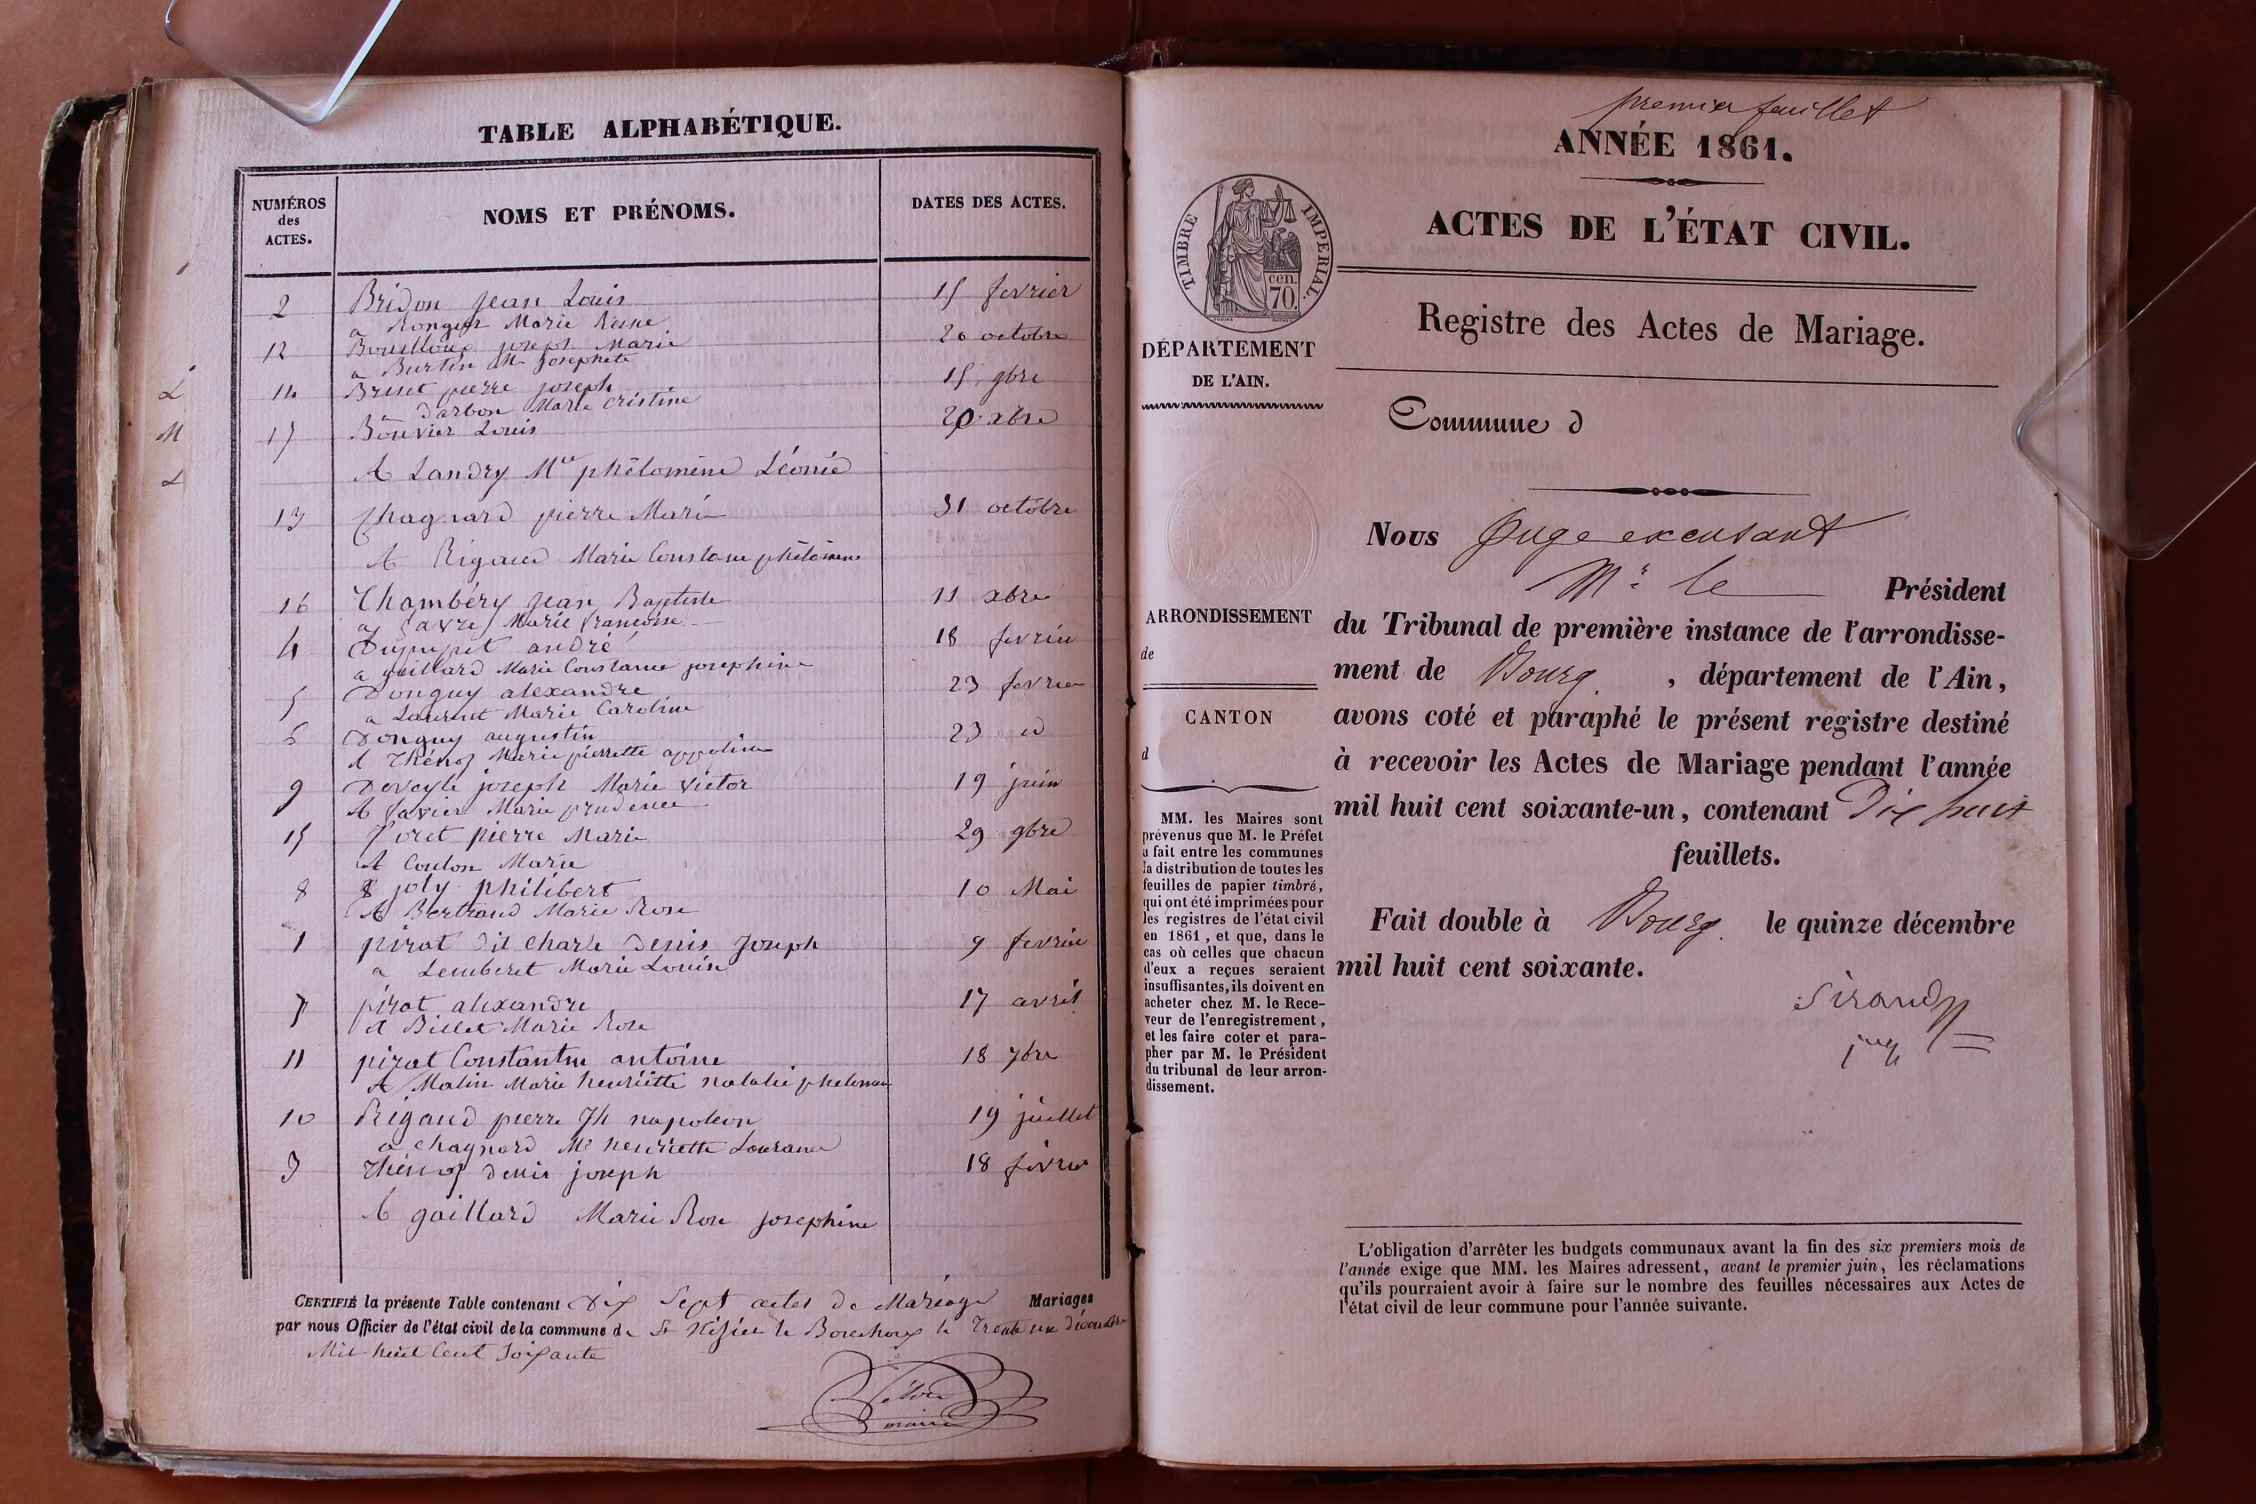 TABLE ALPHABÉTIQUE.
NUMÉROS
des
ACTES.
NOMS ET PRÉNOMS.
DATES DES ACTES.
2 Bridon jean Louis 15 fevrier
a Marie
12 joseph Marie 20 octobre
a Burtin Josephete
L 14 Brunet pierre joseph 15 9bre
Darbon Marie Cristine
M 17 Bouvier Louis 20 xbre
L A Landry Mie philomène Léonie
13 Chagnard pierre Marie 31 octobre
A Rigaud Marie Constance philomene
16 Chambéry jean Baptiste 11 xbre
a Favre Marie Francoise
4 Dupupet andré 18 fevrier
a gaillard Marie Constance josephine
5 Donguy alexandre 23 fevrier
a Laurent Marie Caroline
6 Donguy augustin 23 id
A Thénoz Marie pierrette appoline
9 Deveyle joseph Marie victor 19 juin
A Favier Marie prudence
15 Foret pierre Marie 29 9bre
A Coulon Marie
8 joly philibert 10 Mai
A Bertrand Marie Rose
1 pirat dit charle Denis Joseph 9 fevrier
a Lemberet Marie Louise
7 pirat alexandre 17 avril
A Billet Marie Rose
11 pirat Constantin antoine 18 7bre
A Malin Marie henriette natalie
10 Rigaud pierre Jh napoleon 19 juillet
a chagnard Me henriette
3 Thénoz denis joseph 18 fevrier
A gaillard Marie Rose josephine
CERTIFIÉ la présente Table contenant Dix Sept actes de Mariage Mariages
par nous Officier de l'état civil de la commune de St Nizier le Bouchoux le Trente un décembre
Mil huit Cent Soixante
maire
premier feuillet
ANNÉE 1861.
ACTES DE L'ÉTAT CIVIL.
TIMBRE IMPERIAL.
cen.
70.
Registre des Actes de Mariage.
DÉPARTEMENT
DE L'AIN.
Commune d
Nous Juge excusant
Mr le Président
ARRONDISSEMENT
de
CANTON
d
du Tribunal de première instance de l'arrondisse-
ment de Bourg , département de l'Ain,
avons coté et paraphé le présent registre destiné
à recevoir les Actes de Mariage pendant l'année
mil huit cent soixante-un, contenant Dix huit
feuillets.
Fait double à Bourg le quinze décembre
mil huit cent soixante.
Sirand
juge
MM. les Maires sont
prévenus que M. le Préfet
a fait entre les communes
la distribution de toutes les
feuilles de papier timbré,
qui ont été imprimées pour
les registres de l'état civil
en 1861, et que, dans le
cas où celles que chacun
d'eux a reçues seraient
insuffisantes, ils doivent en
acheter chez M. le Rece-
veur de l'enregistrement,
et les faire coter et para-
pher par M. le Président
du tribunal de leur arron-
dissement.
L'obligation d'arrêter les budgets communaux avant la fin des six premiers mois de
l'année exige que MM. les Maires adressent, avant le premier juin, les réclamations
qu'ils pourraient avoir à faire sur le nombre des feuilles nécessaires aux Actes de
l'état civil de leur commune pour l'année suivante.